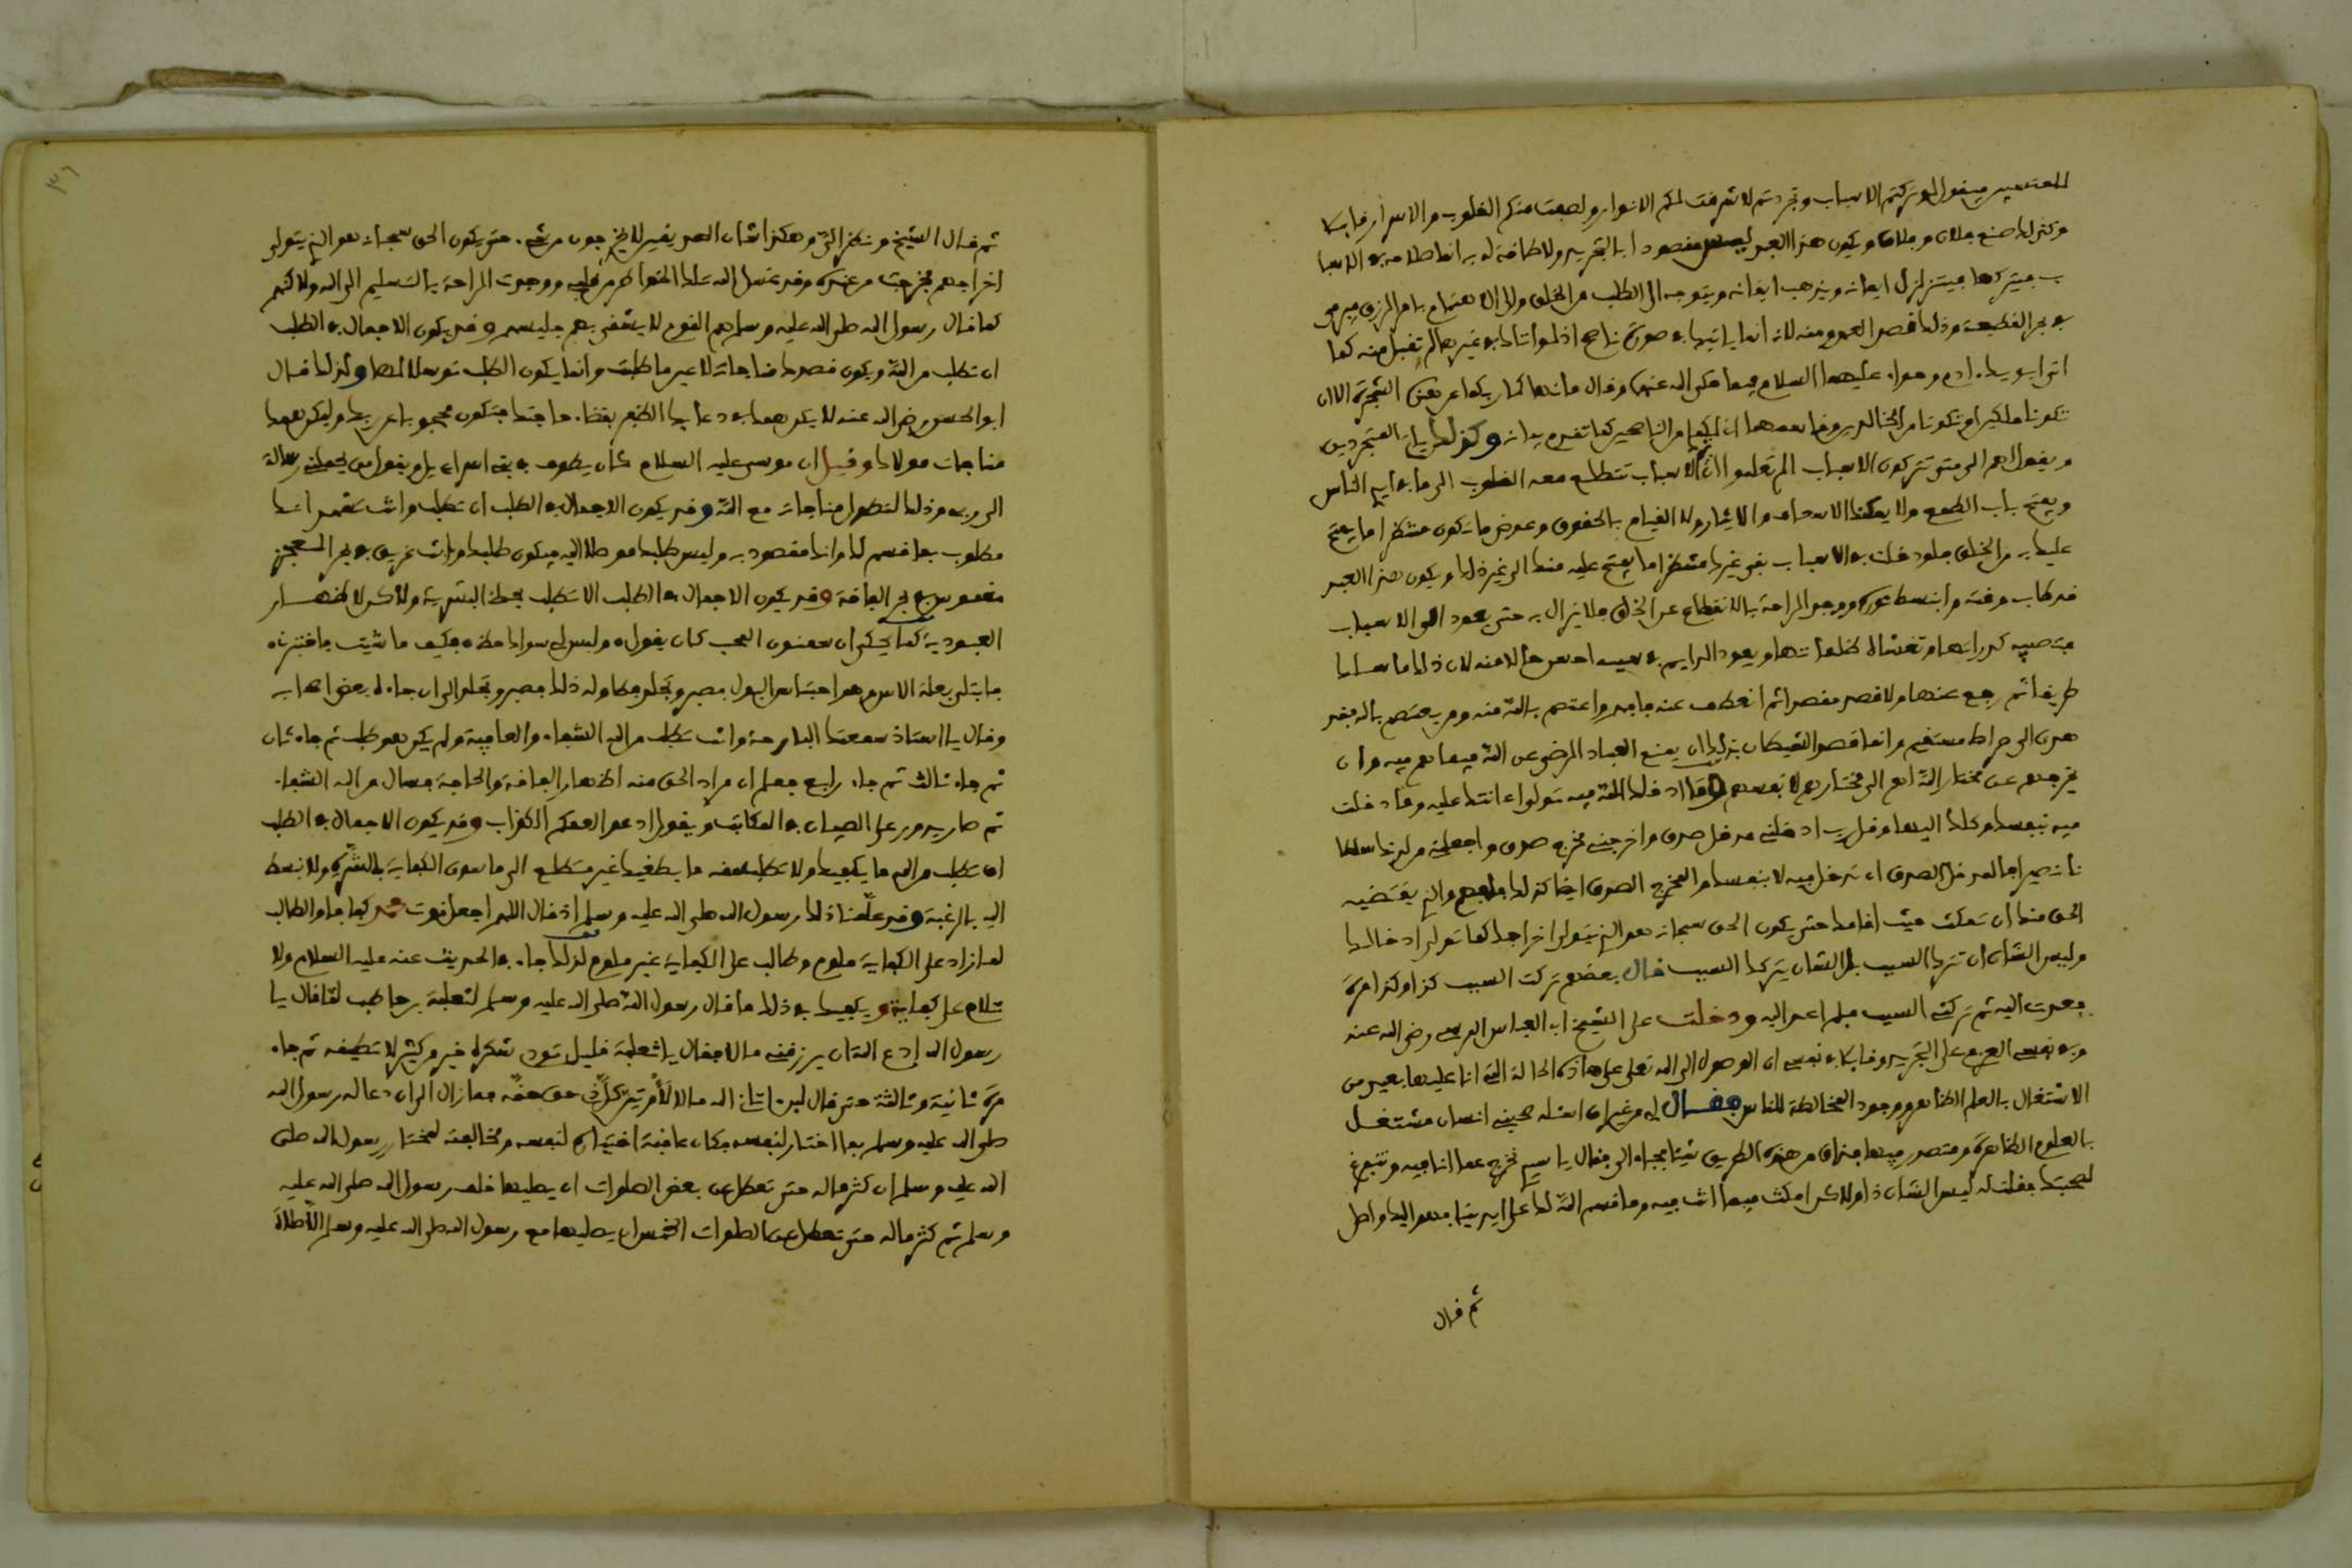 المتسببين فيقول لو تركتم الاسباب وتجردتم لاشرقت لكم الانوار ولصفت منكم القلوب والاسرار
وكذلك صنع فلان وفلان ويكون هذا العبد ليس مقصودا بالتجريد ولا طاقة له به انما صلاحه في الاسبا
ب فيتركها فيتزلزل ايمانه ويذهب ايقانه ويتوجه الى الطلب من الخلق والى الاهتمام بامر الرزق فيرمى
في بحر القطيعة وذلك قصد العدو منه لانه انما ياتيك في صورة ناصح اذ لو اتاك في غيرها لم تقبل منه كما
اتى ادم وحواء عليهما السلام فيما حكى الله عنه وقال ما نهاكما ربكما عن هذه الشجرة الا ان
تكونا ملكين او تكونا من الخالدين وقاسمهما اني لكما لمن الناصحين كما تقدم بيانه وكذلك ياتي المتجردين
ويقول لهم الى متى تتركون الاسباب الم تعلموا ان ترك الاسباب تتطلع معه القلوب الى ما في ايدي الناس
ويفتح باب الطمع ولا يمكنك الاسعاف والايثار ولا القيام بالحقوق وعوض ما تكون منتظرا ما يفتح
عليك به من الخلق فلو دخلت في الاسباب بقي غيرك منتظرا ما يفتح عليه منك الى غير ذلك ويكون هذا العبد
قد طاب وقته وانبسط نوره ووجد الراحة بالانقطاع عن الخلق فلا يزال به حتى يعود الى الاسباب
فتصيبه كدوراتها وتغشاه ظلماتها ويعود الدايم في سببه احسن حالا منه لان ذلك ما سلك
طريقا ثم رجع عنها ولا قصد مقصدا ثم انعطف عنه فافهم واعتصم بالله منه ومن يعتصم بالله فقد
هدي الى صراط مستقيم وانما قصد الشيطان بذلك ان يمنع العباد الرضى عن الله فيما هم فيه وان
يخرجهم عن مختار الله لهم الى مختارهم لانفسهم وما ادخلك الله فيه تولى اعانتك عليه وما دخلت
فيه بنفسك وكلك اليها وقل رب ادخلني مدخل صدق واخرجني مخرج صدق واجعل لي من لدنك سلطا
نا نصيرا فالمدخل الصدق ان تدخل فيه لا بنفسك والمخرج الصدق ايضا كذلك فافهم والذي يقتضيه
الحق منك ان تمكث حيث اقامك حتى يكون الحق سبحانه هو الذي يتولى اخراجك كما تولى ادخالك
وليس الشان ان تترك السبب بل الشان يتركك السبب قال بعضهم تركت السبب كذا وكذا مرة
فعدت اليه ثم تركني السبب فلم اعد اليه ودخلت على الشيخ ابي العباس المرسي رضي الله عنه
وفي نفسي العزم على التجريد وقايلا في نفسي ان الوصول الى الله تعلى على هاذه الحالة التي انا عليها بعيد من
الاشتغال بالعلم الظاهر ووجود المخالطة للناس فقال لي من غير ان اسئله صحبني انسان مشتغل
بالعلوم الظاهرة ومتصدر فيها فذاق من هذه الطريق شيئا فجاء الي فقال يا سيدي نخرج عما انا فيه ونتفرغ
لصحبتك فقلت له ليس الشان ذا ولاكن امكث فيما انت فيه وما قسم الله لك على ايدينا فهو اليك واصل
ثم قال
٣٦
ثم قال الشيخ ونظر الي وهكذا شان الصديقين لا يخرجون من شيء حتى يكون الحق سبحانه هو الذي يتولى
اخراجهم فخرجت من عنده وقد غسل الله تلك الخواطر من قلبي ووجدت الراحة بالتسليم الى الله ولاكنهم
كما قال رسول الله صلى الله عليه وسلم هم القوم لا يشقى بهم جليسهم وقد يكون الاجمال في الطلب
ان تطلب من الله ويكون قصدك مناجاته لا عين ما طلبت وانما يكون الطلب توسلا لها ولذلك قال
ابو الحسن رضي الله عنه لا يكن همك في دعايك الظفر بقضاء حاجتك فتكون محجوبا عن ربك وليكن همك
مناجات مولاك وقيل ان موسى عليه السلام كان يطوف في بني اسراءيل ويقول من يحملني رسالة
الى ربي وذلك لتطول مناجاته مع الله وقد يكون الاجمال في الطلب ان تطلب وانت تشهد انك
مطلوب بما قسم لك وانك مقصود به وليس طلبك موصلا اليه فيكون طلبك وانت غريق في بحر العجز
مغموس في بحر الفاقة وقد يكون الاجمال في الطلب الا تطلب بحظ البشرية ولاكن لاظهار
العبودية كما يحكى ان سمنون المحب كان يقول ه وليس لي سواك حظ ه فكيف ما شيت فاختبرني ه
فابتلي بعلة الاسر وهو احتباس البول فصبر وتجلد وطاوله ذلك فصبر وتجلد الى ان جاءه بعض اصحابه
وقال يا استاذ سمعتك البارحة وانت تطلب من الله الشفاء والعافية ولم يكن هو طلب ثم جاءه ثان
ثم جاء ثالث ثم جاء رابع فعلم ان مراد الحق منه اظهار الفاقة والحاجة فسال من الله الشفاء
ثم صار يدور على الصبيان في المكاتب ويقول ادعوا لعمكم الكذاب وقد يكون الاجمال في الطلب
ان تطلب من الله ما يكفيك ولا تطلب منه ما يطغيك غير متطلع الى ما سوى الكفاية بالشره ولا نبسط
اليه بالرغبة وقد علمنا ذلك رسول الله صلى الله عليه وسلم اذ قال اللهم اجعل قوت محمد كفافا والطالب
لما زاد على الكفاية ملوم وطالب على الكفاية غير ملوم لذلك جاء في الحديث عنه عليه السلام ولا
تلام على كفاية ويكفيك في ذلك ما قال رسول الله صلى الله عليه وسلم لثعلبة بن حاطب لما قال يا
رسول الله ادع الله ان يرزقني مالا فقال يا ثعلبة قليل تودي شكره خير من كثير لا تطيقه ثم جاء
مرة ثانية وثالثة حتى قال لين اتاني الله مالا لأوتين كل ذي حق حقه فما زال الى ان دعا له رسول الله
صلى الله عليه وسلم بما اختار لنفسه فكان عاقبة اختياره لنفسه ومخالفته لمختار رسول الله صلى
الله عليه وسلم ان كثر ماله حتى تعطل عن بعض الصلوات ان يصليها خلف رسول الله صلى الله عليه
وسلم ثم كثر ماله حتى تعطل عن الصلوات الخمس ان يصليها مع رسول الله صلى الله عليه وسلم الا صلاة